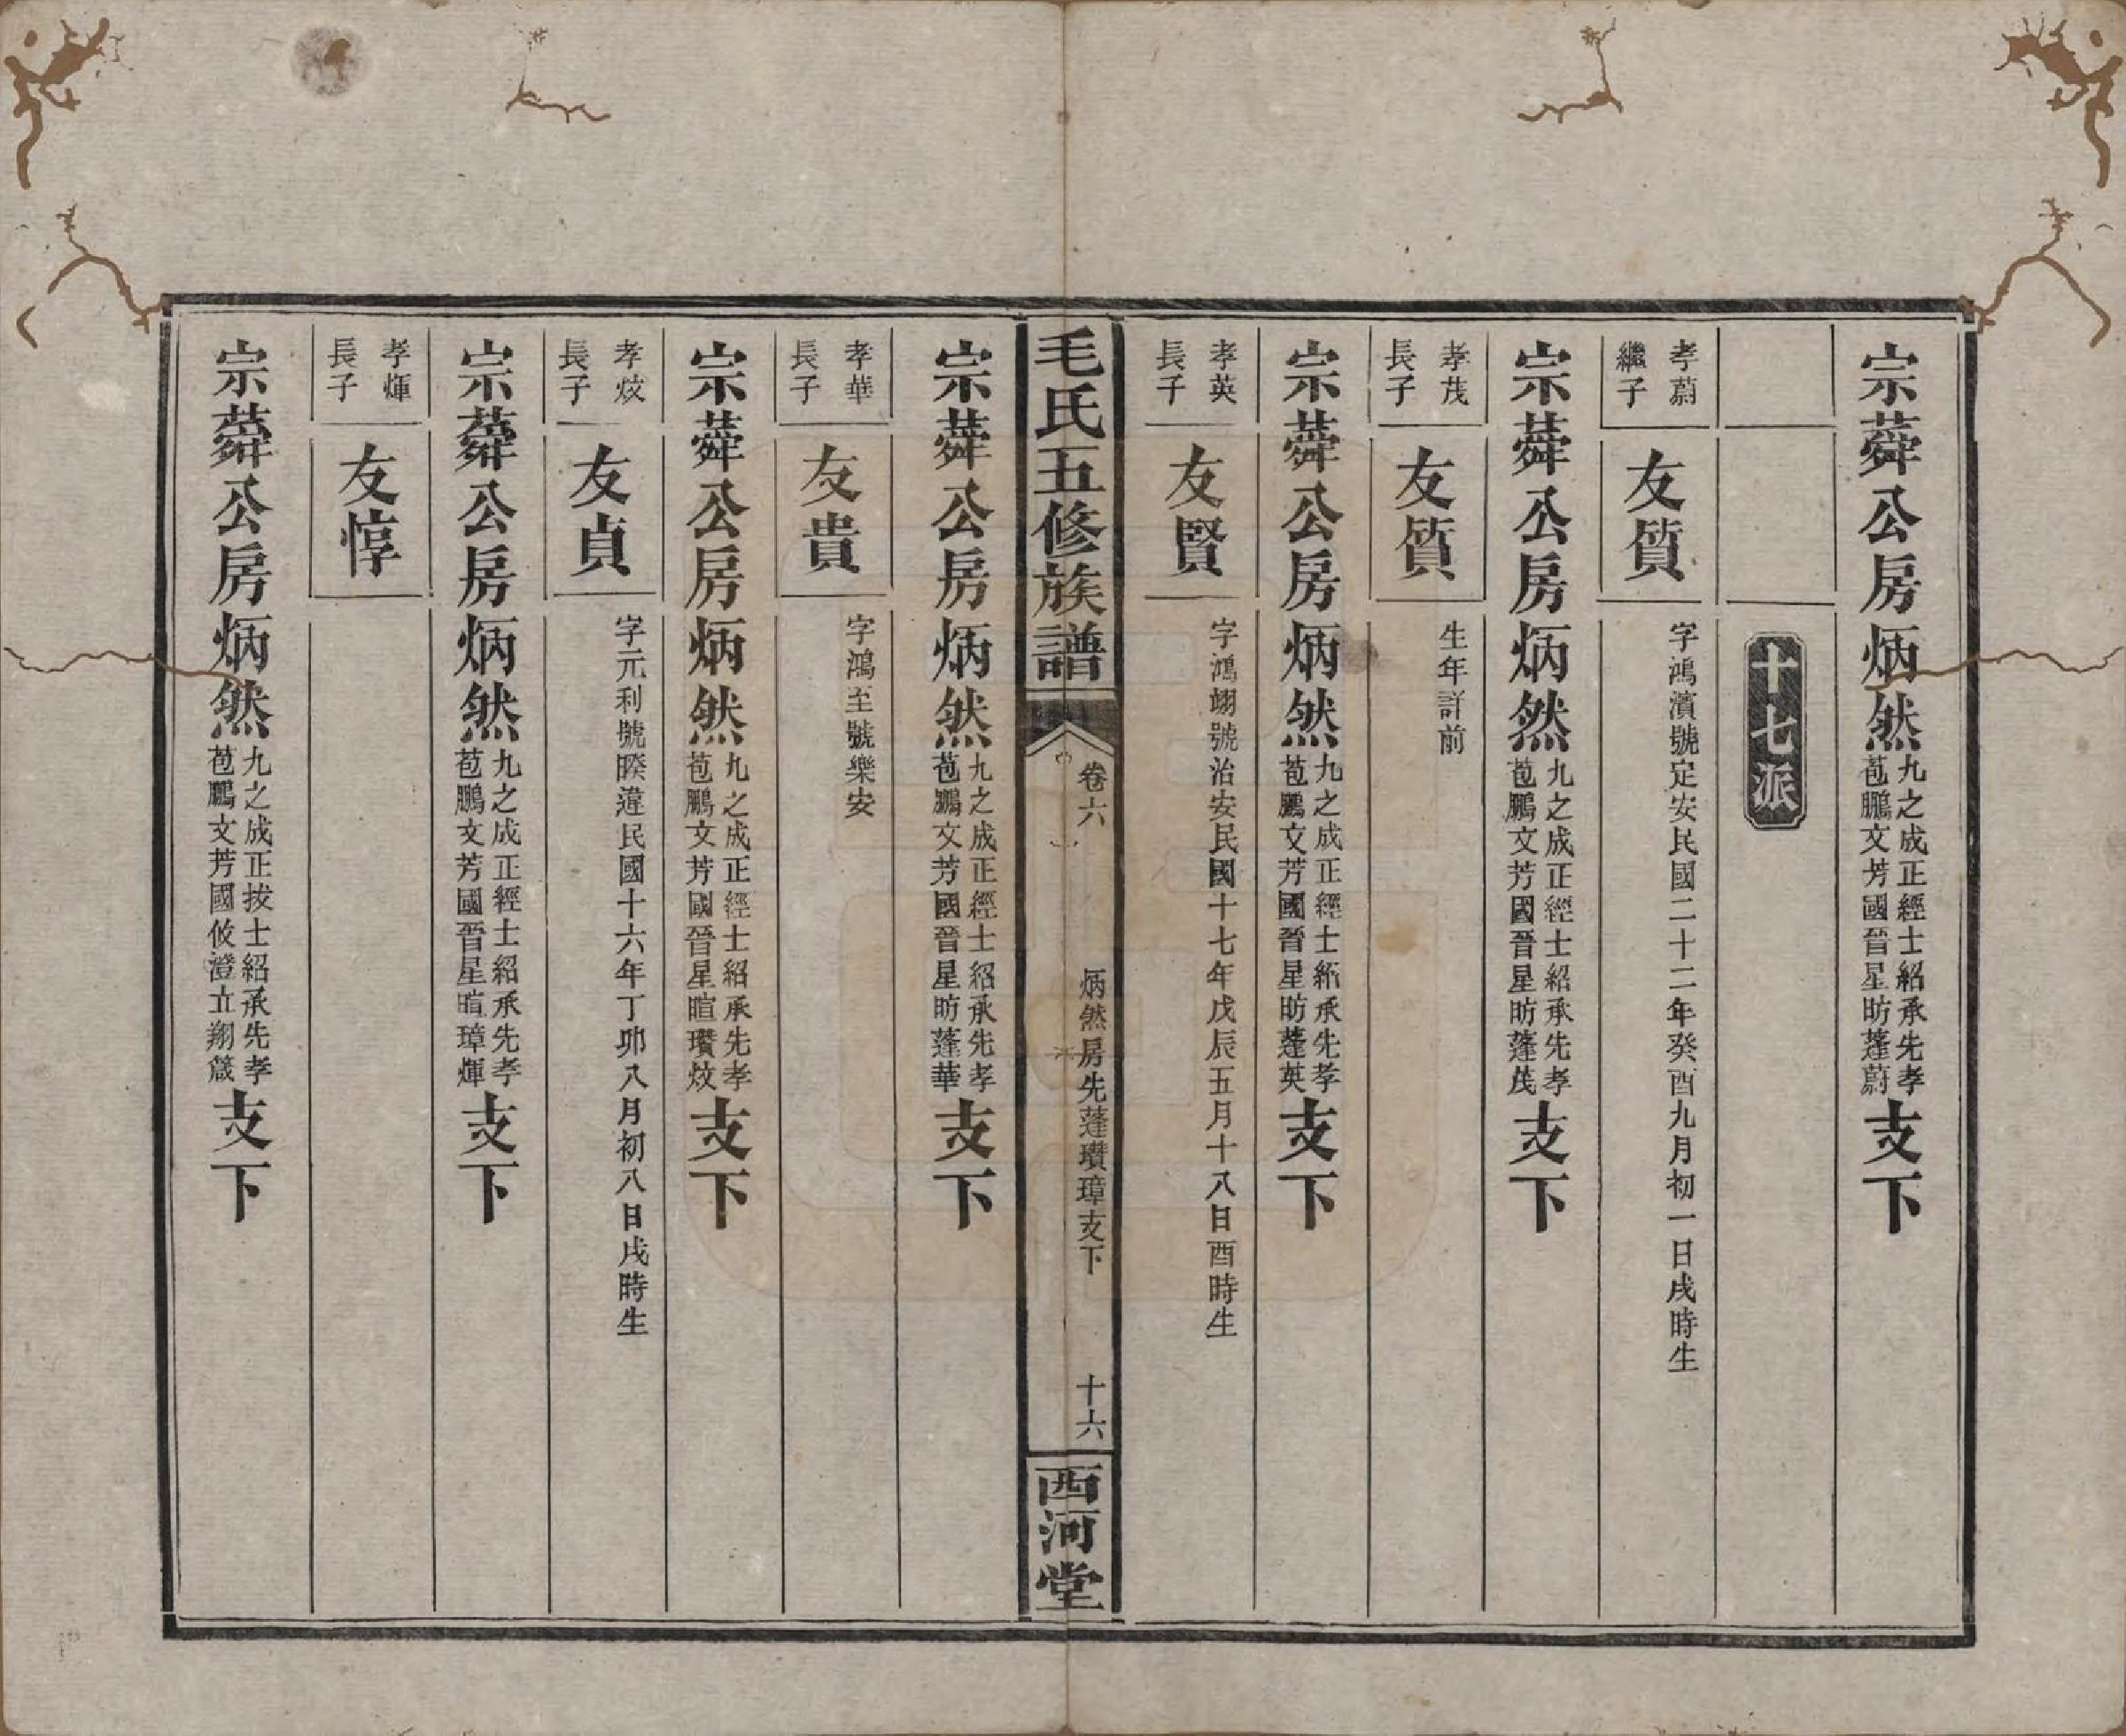 宗蕣公房炳然九之成正經士紹承先孝
苞鵬文芳國晉星昉蓬蔚支下
十七派
孝蔚
繼子
友質
字鴻濱號定安民國二十二年癸酉九月初一日戌時生
宗蕣公房炳然九之成正經士紹承先孝
苞鵬文芳國晉星昉蓬茂支下
孝茂
長子
友質
生年詳前
宗蕣公房炳然九之成正經士紹承先孝
苞鵬文芳國晉星昉蓬英支下
孝英
長子
友賢
字鴻翊號治安民國十七年戊辰五月十八日酉時生
毛氏五修族譜
卷六
炳然房先蓬瓚璋支下
十六
西河堂
宗蕣公房炳然九之成正經士紹承先孝
苞鵬文芳國晉星昉蓬華支下
孝華
長子
友貴
字鴻至號樂安
宗蕣公房炳然九之成正經士紹承先孝
苞鵬文芳國晉星暄瓚炆支下
孝炆
長子
友貞
字元利號暌違民國十六年丁卯八月初八日戌時生
宗蕣公房炳然九之成正經士紹承先孝
苞鵬文芳國晉星暄璋煇支下
孝煇
長子
友惇
宗蕣公房炳然九之成正拔士紹承先孝
苞鵬文芳國攸澄立翔箴支下